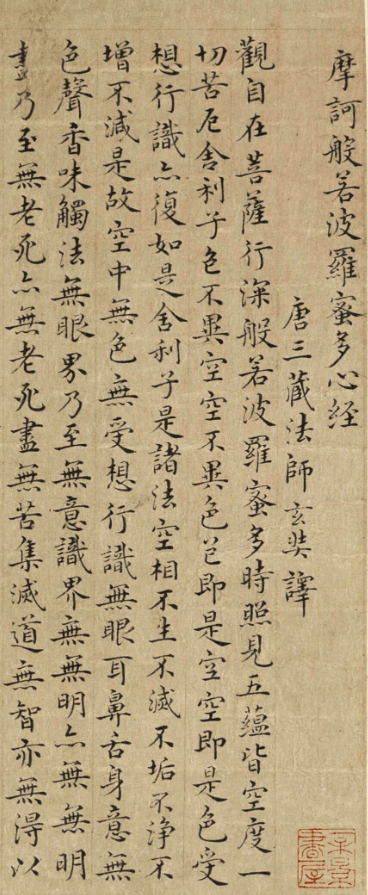 摩訶般若波羅蜜多心経
唐三藏法師玄奘譯
觀自在菩薩行深般若波羅蜜多時照見五蘊皆空度一
切苦厄舍利子色不異空空不異色色即是空空即是色受
想行識亦復如是舍利子是諸法空相不生不滅不垢不淨不
增不減是故空中無色無受想行識無眼耳鼻舌身意無
色聲香味觸法無眼界乃至無意識界無無明亦無無明
盡乃至無老死亦無老死盡無苦集滅道無智亦無得以